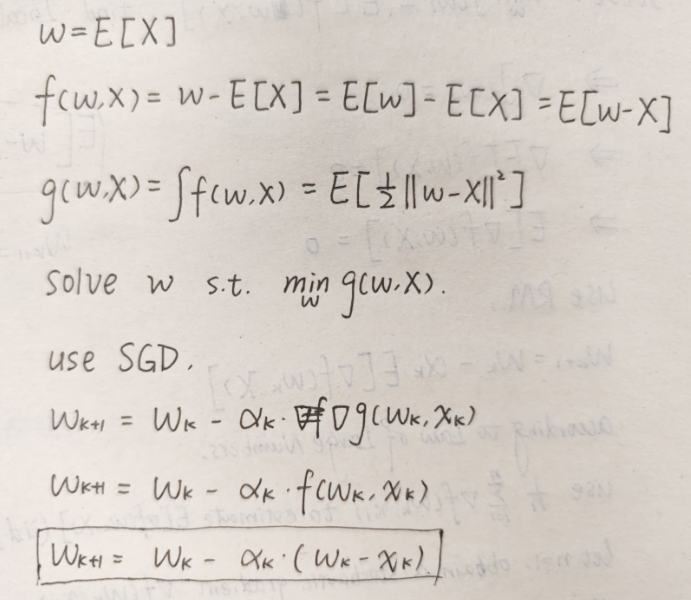 w = E[X]
f(w,X) = w - E[X] = E[w] - E[X] = E[w-X]
g(w,X) = ∫f(w,X) = E[½||w-X||²]
solve w s.t. min_w g(w,X).
use SGD.
w_{k+1} = w_k - α_k · ∇g(w_k, x_k)
w_{k+1} = w_k - α_k · f(w_k, x_k)
w_{k+1} = w_k - α_k · (w_k - x_k)